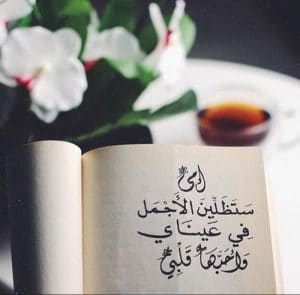 أمي
سَتَظَلِّينَ الأَجْمَل
فِي عَينَاي
قَلْبِي